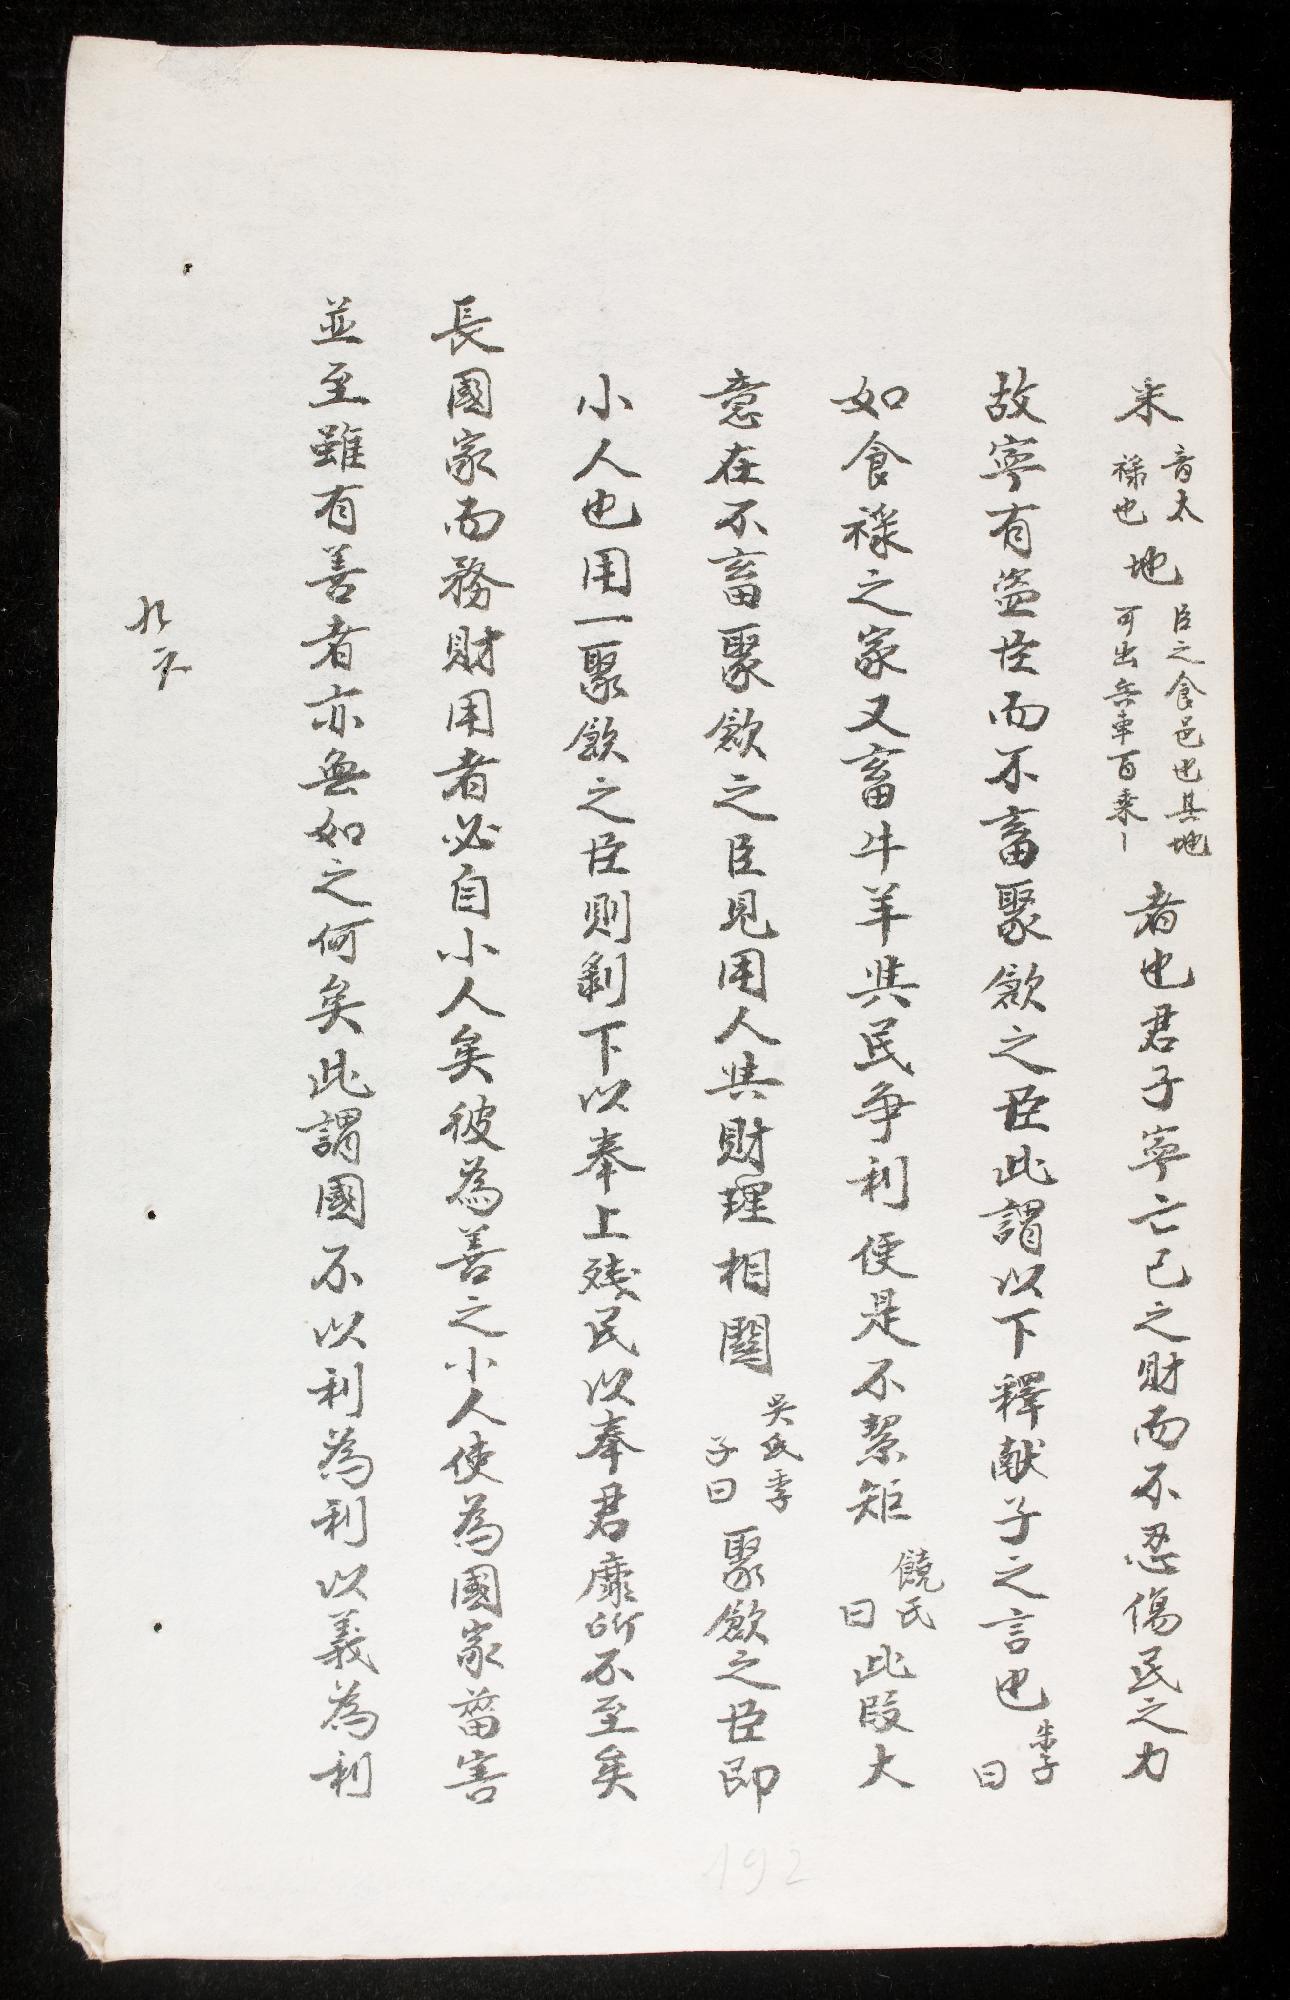 采音太祿也地臣之食邑也其地可出兵車百乘丨者也君子寧亡己之財而不忍傷民之力
故寧有盗臣而不畜聚斂之臣此謂以下釋献子之言也朱子曰
如食祿之家又畜牛羊與民争利便是不絜矩饒氏曰此段大
意在不畜聚斂之臣見用人與財理相關吳氏季子曰聚斂之臣即
小人也用一聚斂之臣則剝下以奉上殘民以奉君靡所不至矣
長國家而務財用者必自小人矣彼為善之小人使為國家菑害
並至雖有善者亦無如之何矣此謂國不以利為利以義為利
192